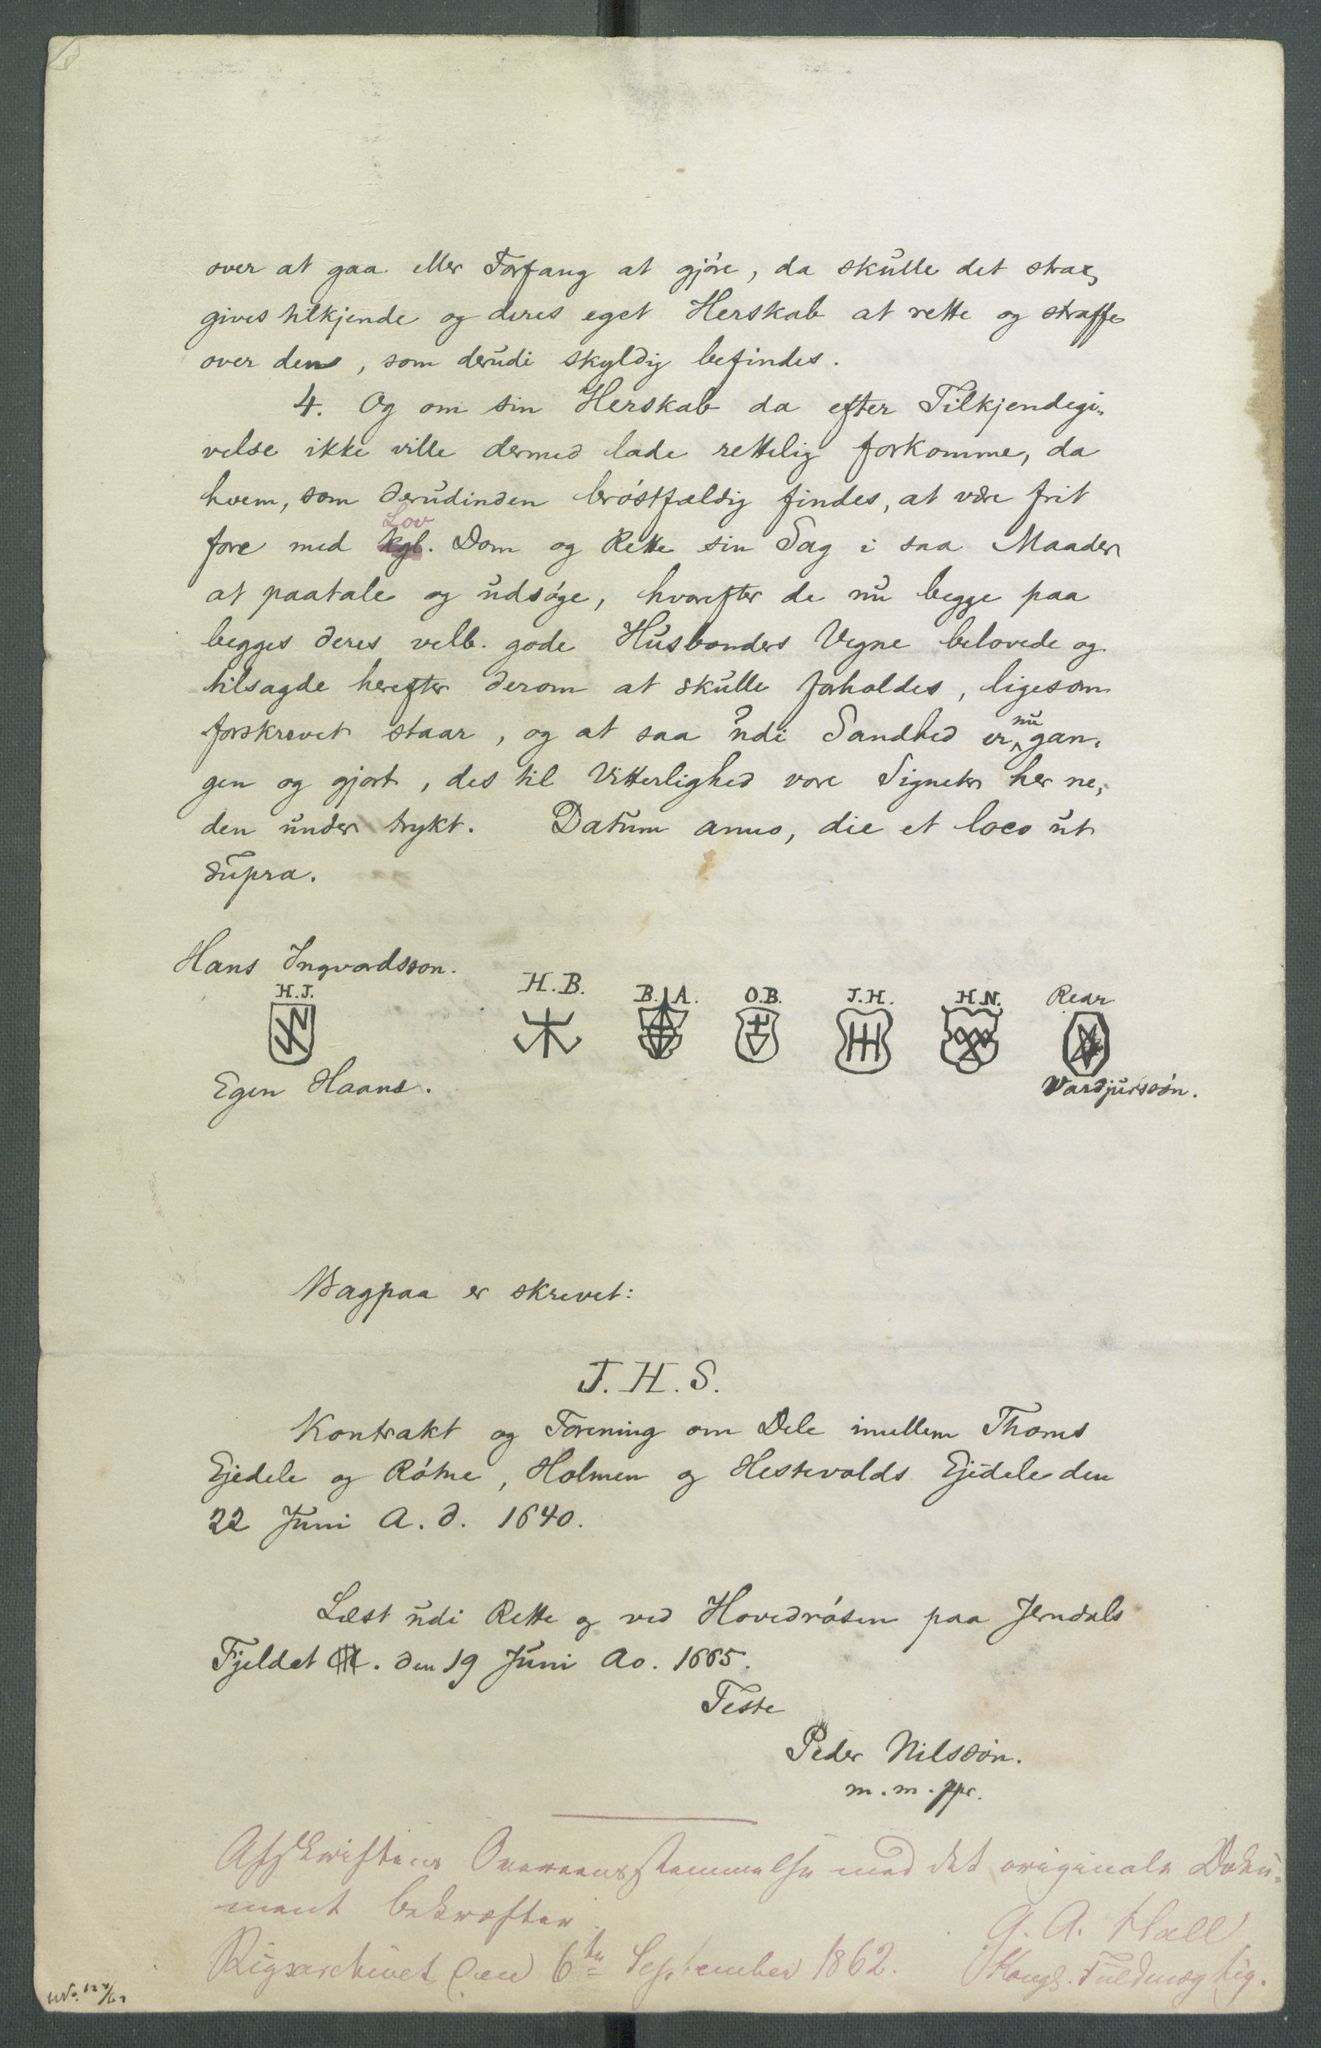 over at gaa eller Forfang at gjöre, da skulle det strax
gives tilkjende og deres eget Herskab at rette og straffe
over dem, som derudi skyldig befindes.
4. Og om sin Herskab da efter Tilkjendegi-
velse ikke ville dermed lade rettelig forkomme, da
hvem, som derudinden bröstfældig findes, at være frit
fore med kgl. Lov Dom og Rette sin Sag i saa Maader
at paatale og udsöge, hvorefter de nu begge paa
begges deres velb. gode Husbonders Vegne belovede og
tilsagde herefter derom at skulle forholdes, ligesom
forskrevet staar, og at saa udi Sandhed er nu gan-
gen og gjort, des til Vitterlighed vore Signeter her ne-
den under trykt. Datum anno, die et loco ut
supra.
Hans Ingvordsson.
H.J. H.B. B.A. O.B. J.H. H.N. Reiar
Egen Haand. Vardjursson.
Bagpaa er skrevet:
J.H.S.
Kontrakt og Forening om Dele imellem Thoms
Ejedele og Rótne, Holmen og Hestevolds Ejedele den
22 Juni A. d. 1640.
Læst udi Rette og ved Hovedrösen paa Jerndals
Fjeldet . den 19 Juni Ao. 1665.
Teste
Peder Nilssön.
m. m. ppr.
Afskriftens Overeensstemmelse med det originale Doku-
ment bekræfter
A. Hall
Rigsarchivet den 6te September 1862. Kongl. Fuldmægtig.